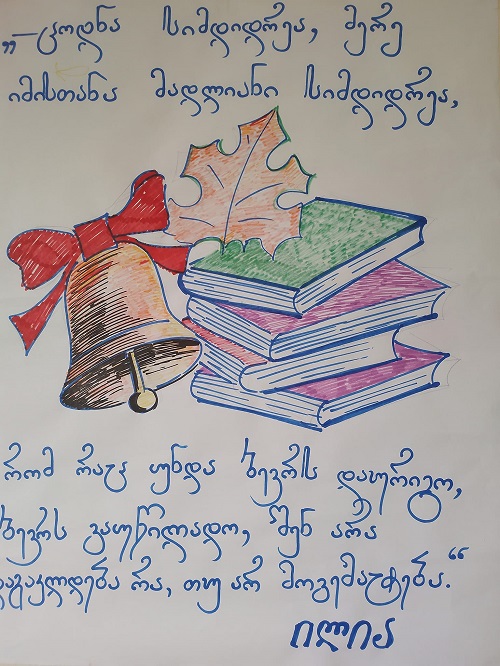 „–ცოდნა სიმდიდრეა, მერე
იმისთანა მადლიანი სიმდიდრეა,
რომ რაც უნდა ბევრს დაურიგო,
ბევრს გაუწილადო, შენ არა
დაგაკლდება რა, თუ არ მოგემატება.“
ილია